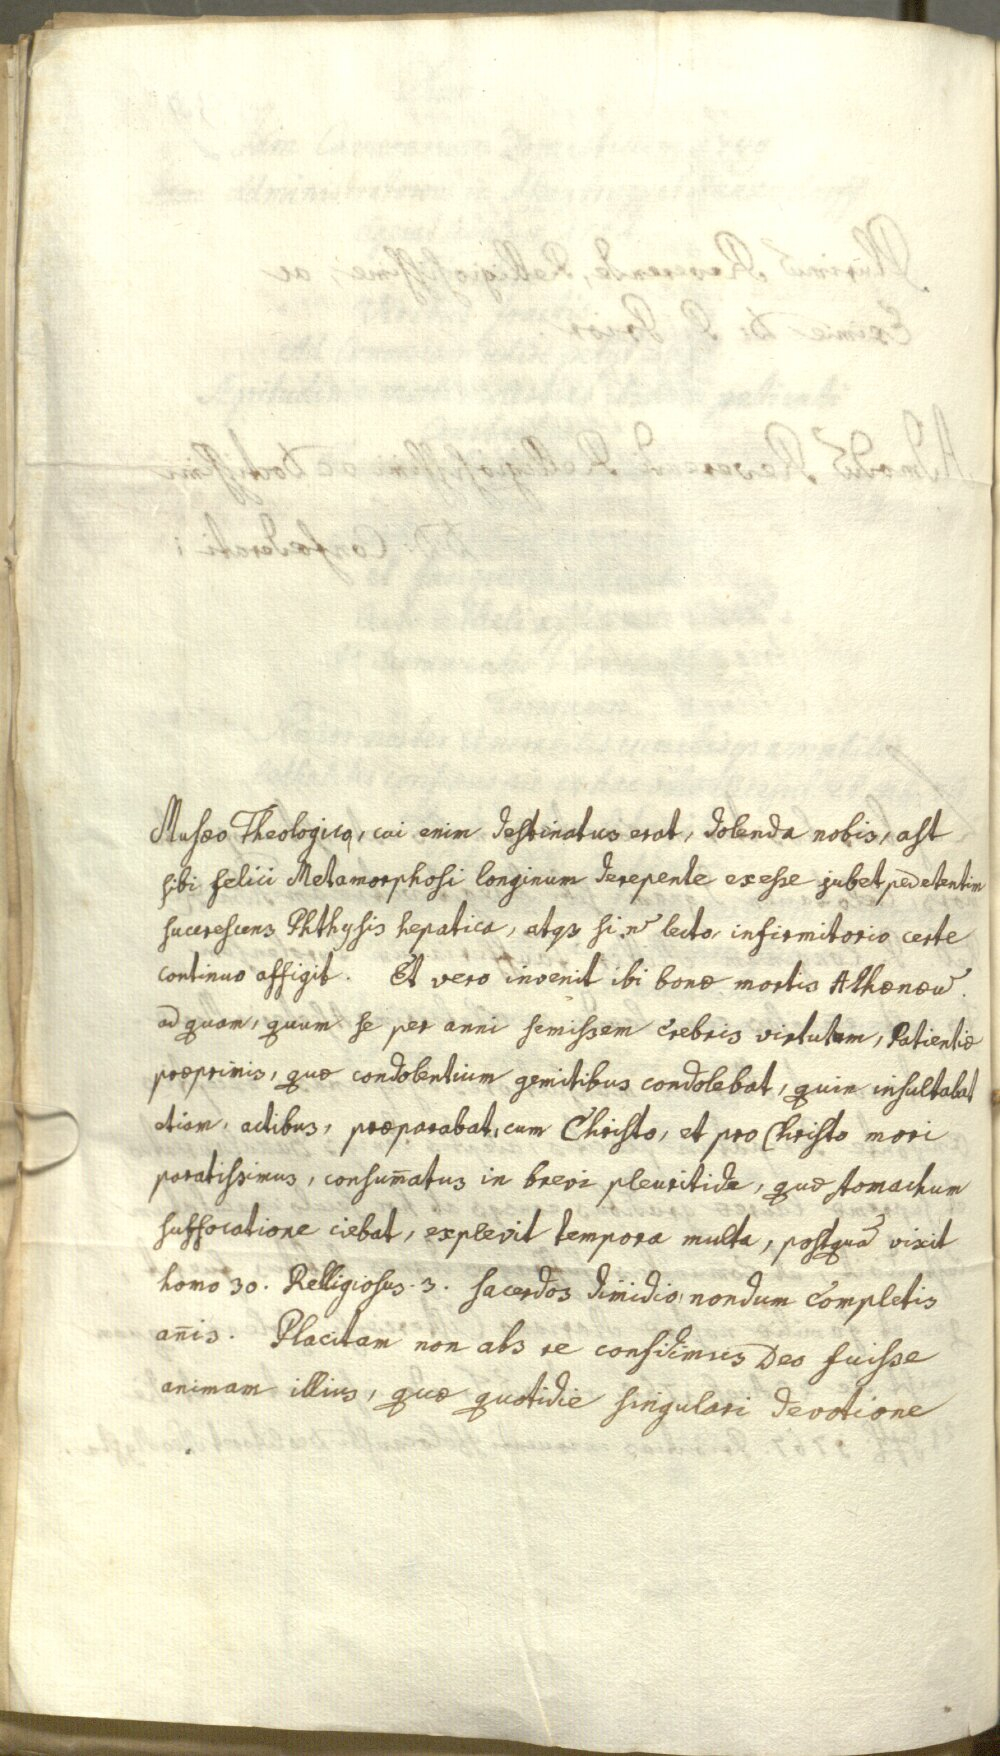 Musæo Theologico, cui enim destinatus erat, dolenda nobis, ast
sibi felici Metamorphosi longinum derepente exesse jubet pedetentim
sucrescens Phthysis hepatica, atqz si n̄ lecto, infirmitorio certe
continuo affigit. Et vero invenit ibi bonæ mortis Athenæū.
ad quam, quum se per anni semissem crebris virtutum, Patientiæ
præprimis, quæ condolentium gemitibus condolebat, quin insultabat
etiam, actibus, præparabat, cum Christo, et pro Christo mori
paratissimus, consum̄atus in brevi pleuritide, quæ stomachum
suffocatione ciebat, explevit tempora multa, postquā vixit
homo 30. Relligiosus. 3. sacerdos dimidio, nondum completis
an̄is. Placitam non abs re confidimus Deo fuisse
animam illius, quæ quotidie singulari devotione